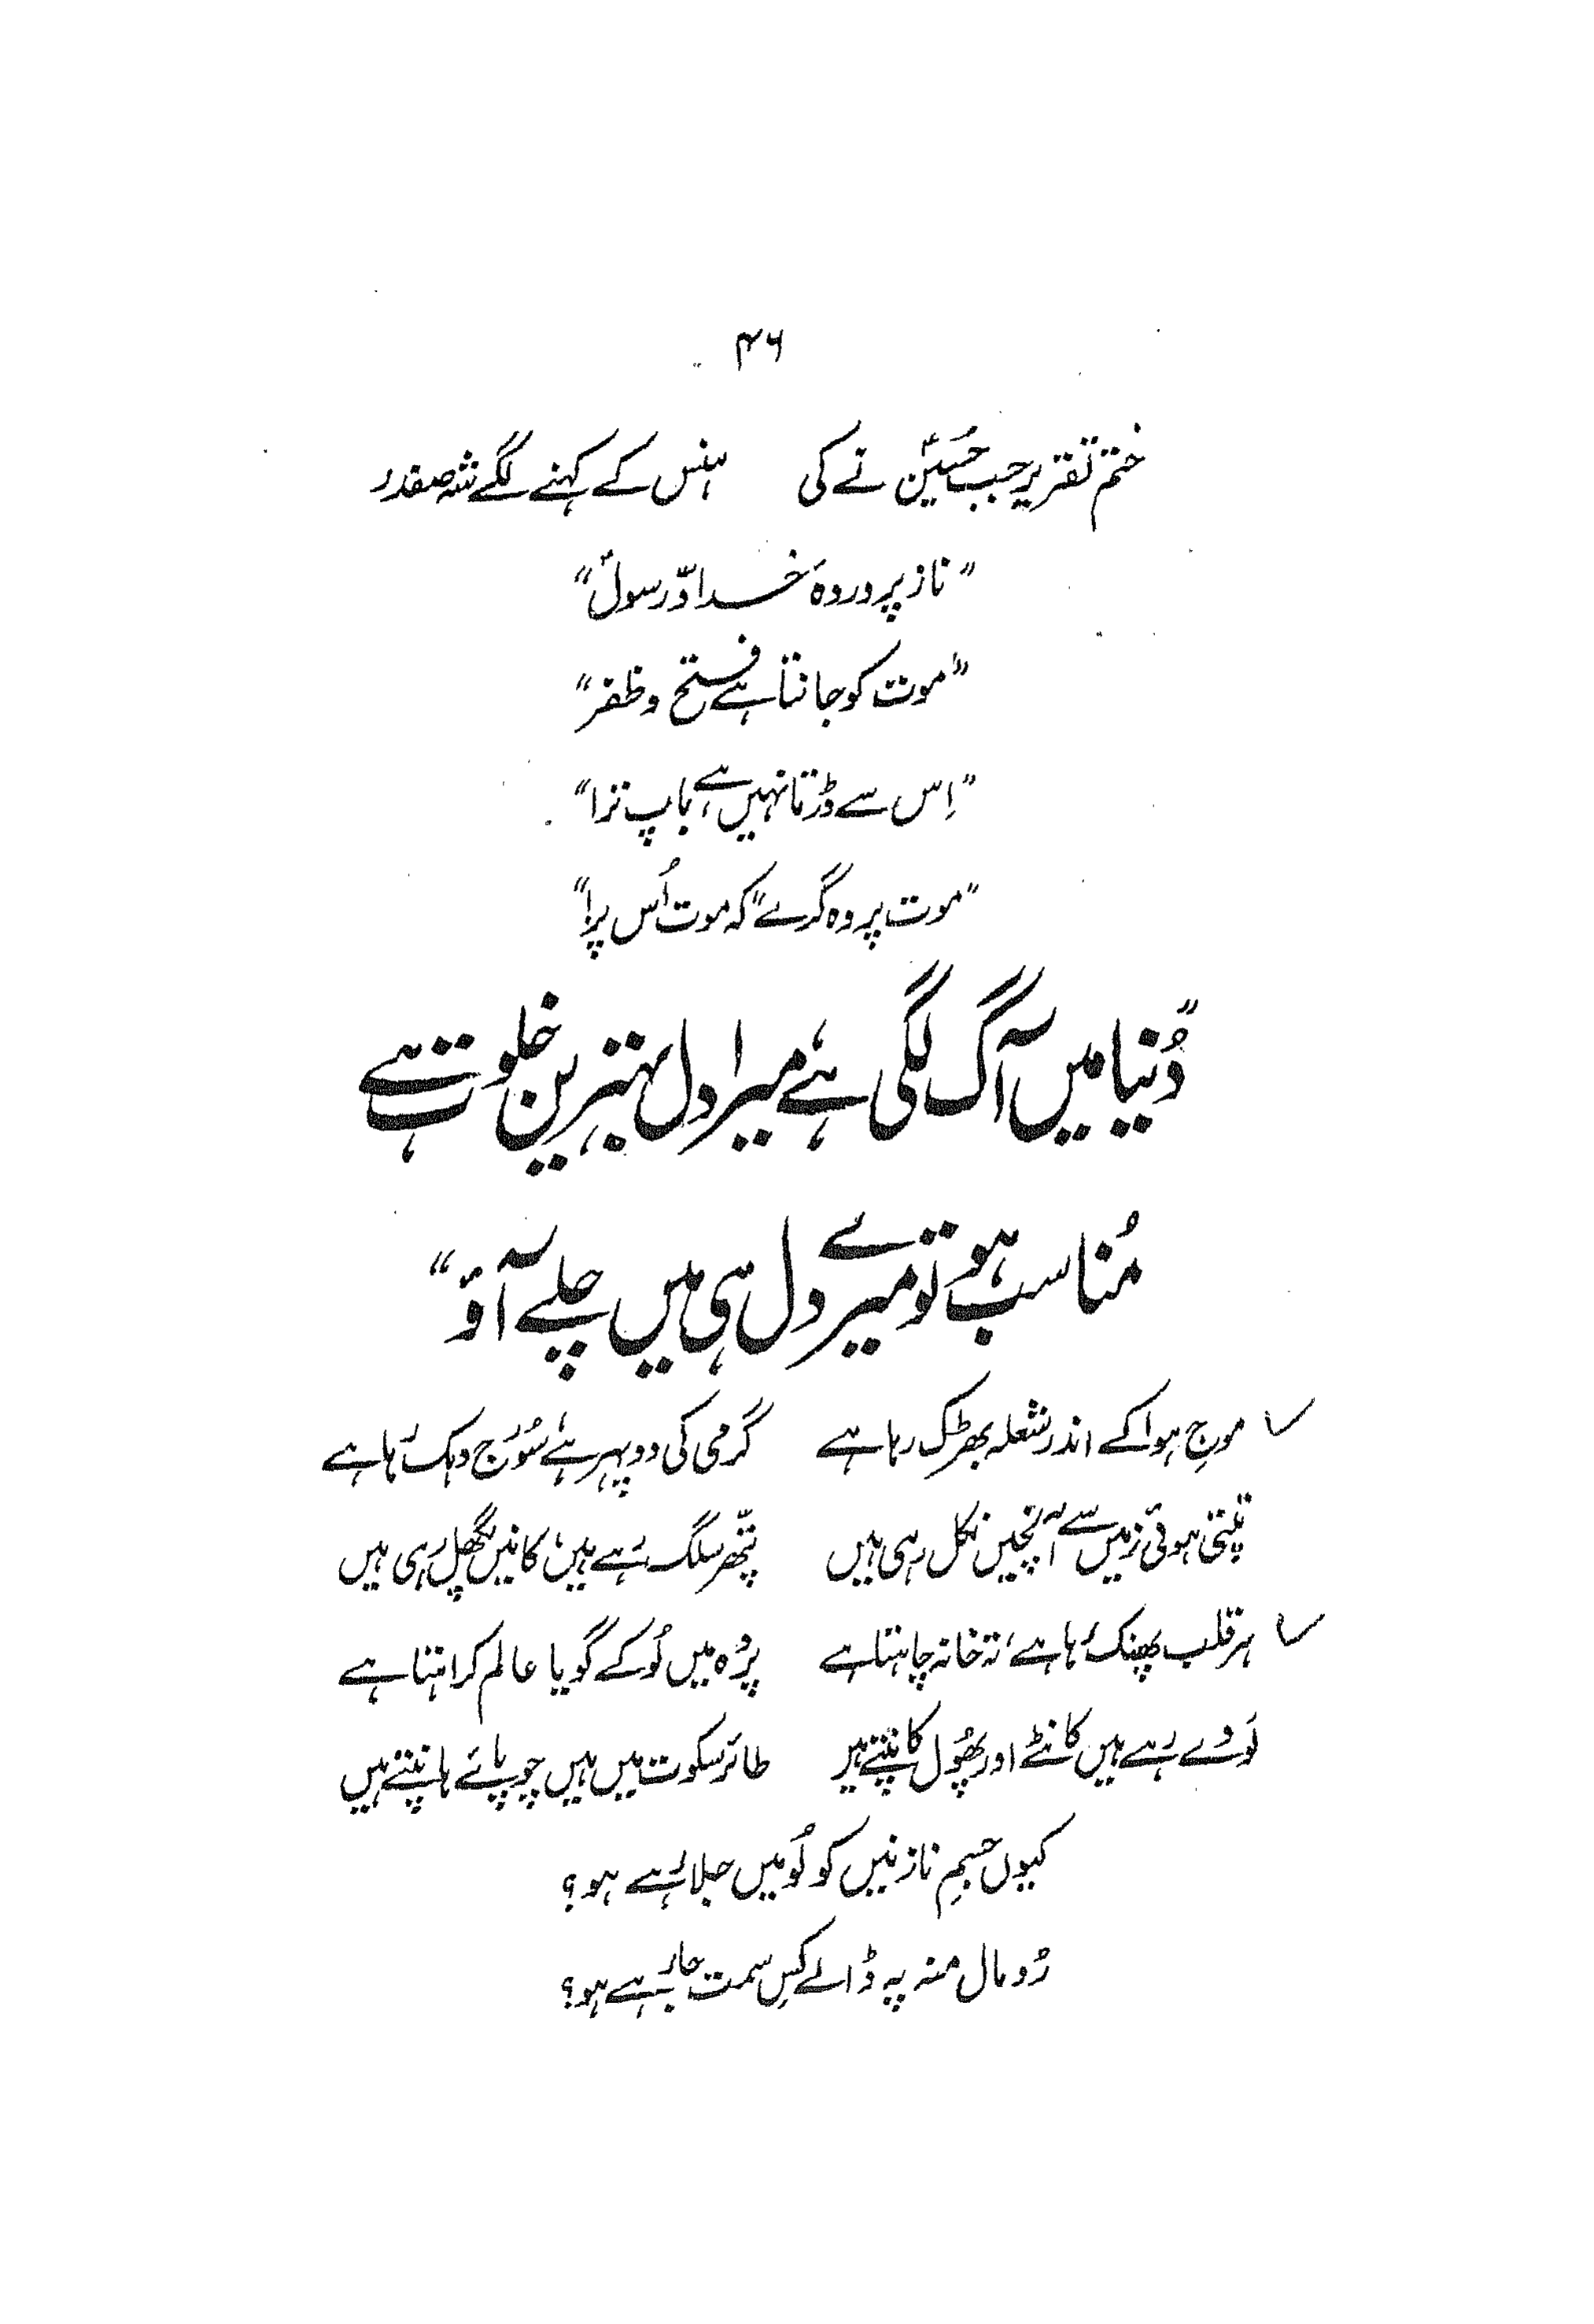 ۴۶
ختم تقریر جب حُسینؑ نے کی ہنس کے کہنے لگے شہ صفدر
"ناز پروردۂ خدا و رسولؐ"
"موت کو جانتا ہے فتح و ظفر"
"اِس سے ڈرتا نہیں ہے، باپ ترا"
"موت پر وہ گرے" کہ موت اُس پر!"
"دُنیا میں آگ لگی ہے میرا دل بہترین خلوت ہے
مُناسب ہو تو میرے دل ہی میں چلے آؤ"
موجِ ہوا کے اندر شعلہ بھڑک رہا ہے گرمی کی دوپہر ہے، سُورج دہک رہا ہے
تپتی ہوئی زمیں سے آنچیں نکل رہی ہیں پتّھر سلگ رہے ہیں، کانیں پگھل رہی ہیں
ہر قلب پھنک رہا ہے، تہ خانہ چاہتا ہے پرْدہ میں لُو کے گویا عالم کراہتا ہے
لَو دے رہے ہیں کانٹے اور پھُول کانپتے ہیں طائر سکوت میں ہیں چوپائے ہانپتے ہیں
کیوں جسمِ نازنیں کو لُو میں جلا رہے ہو؟
رُومال منہ پہ ڈالے کِس سمت جا رہے ہو؟